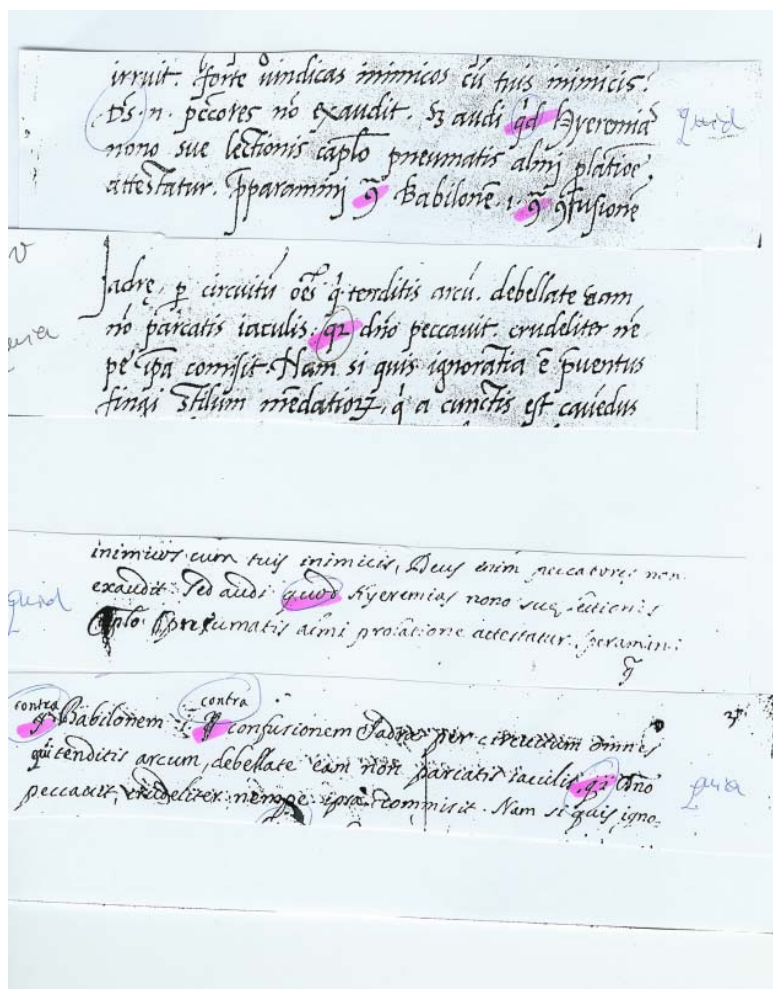 irruit. forte vindicas inimicos cū tuis inimicis.
d̄s .n. pcc̄ores nō exaudit. Sꝫ audi qd̄ Hyeremia quid
nono sue lectionis capl̄o pneumatis almi
attestatur. p̄paramini Babilonē .i. ꝯfusionē
Jadrę, ꝑ circuitū oēs tenditis arcū. debellate eam
nō parcatis iaculis. qꝛ dn̄o peccavit. crudeliter nē
pe ip̄a comisit. Nam si quis ignoratia ē
fingi Stilum a cunctis est
inimicos cum tuis inimicis, Deus enim peccatores non
quid exaudit. Sed audi quod Hyeremias nono suę lectionis
Cplo. Spneumatis almi prolatione attestatur. peramini
contra contra
Babilonem .i. confusionem Jadrę per circuitum omnes
qui tenditis arcum, debellate eam non parcatis iaculis, dn̄o quia
peccauit, crudeliter nempe ipsa commisit. Nam si quis igno-